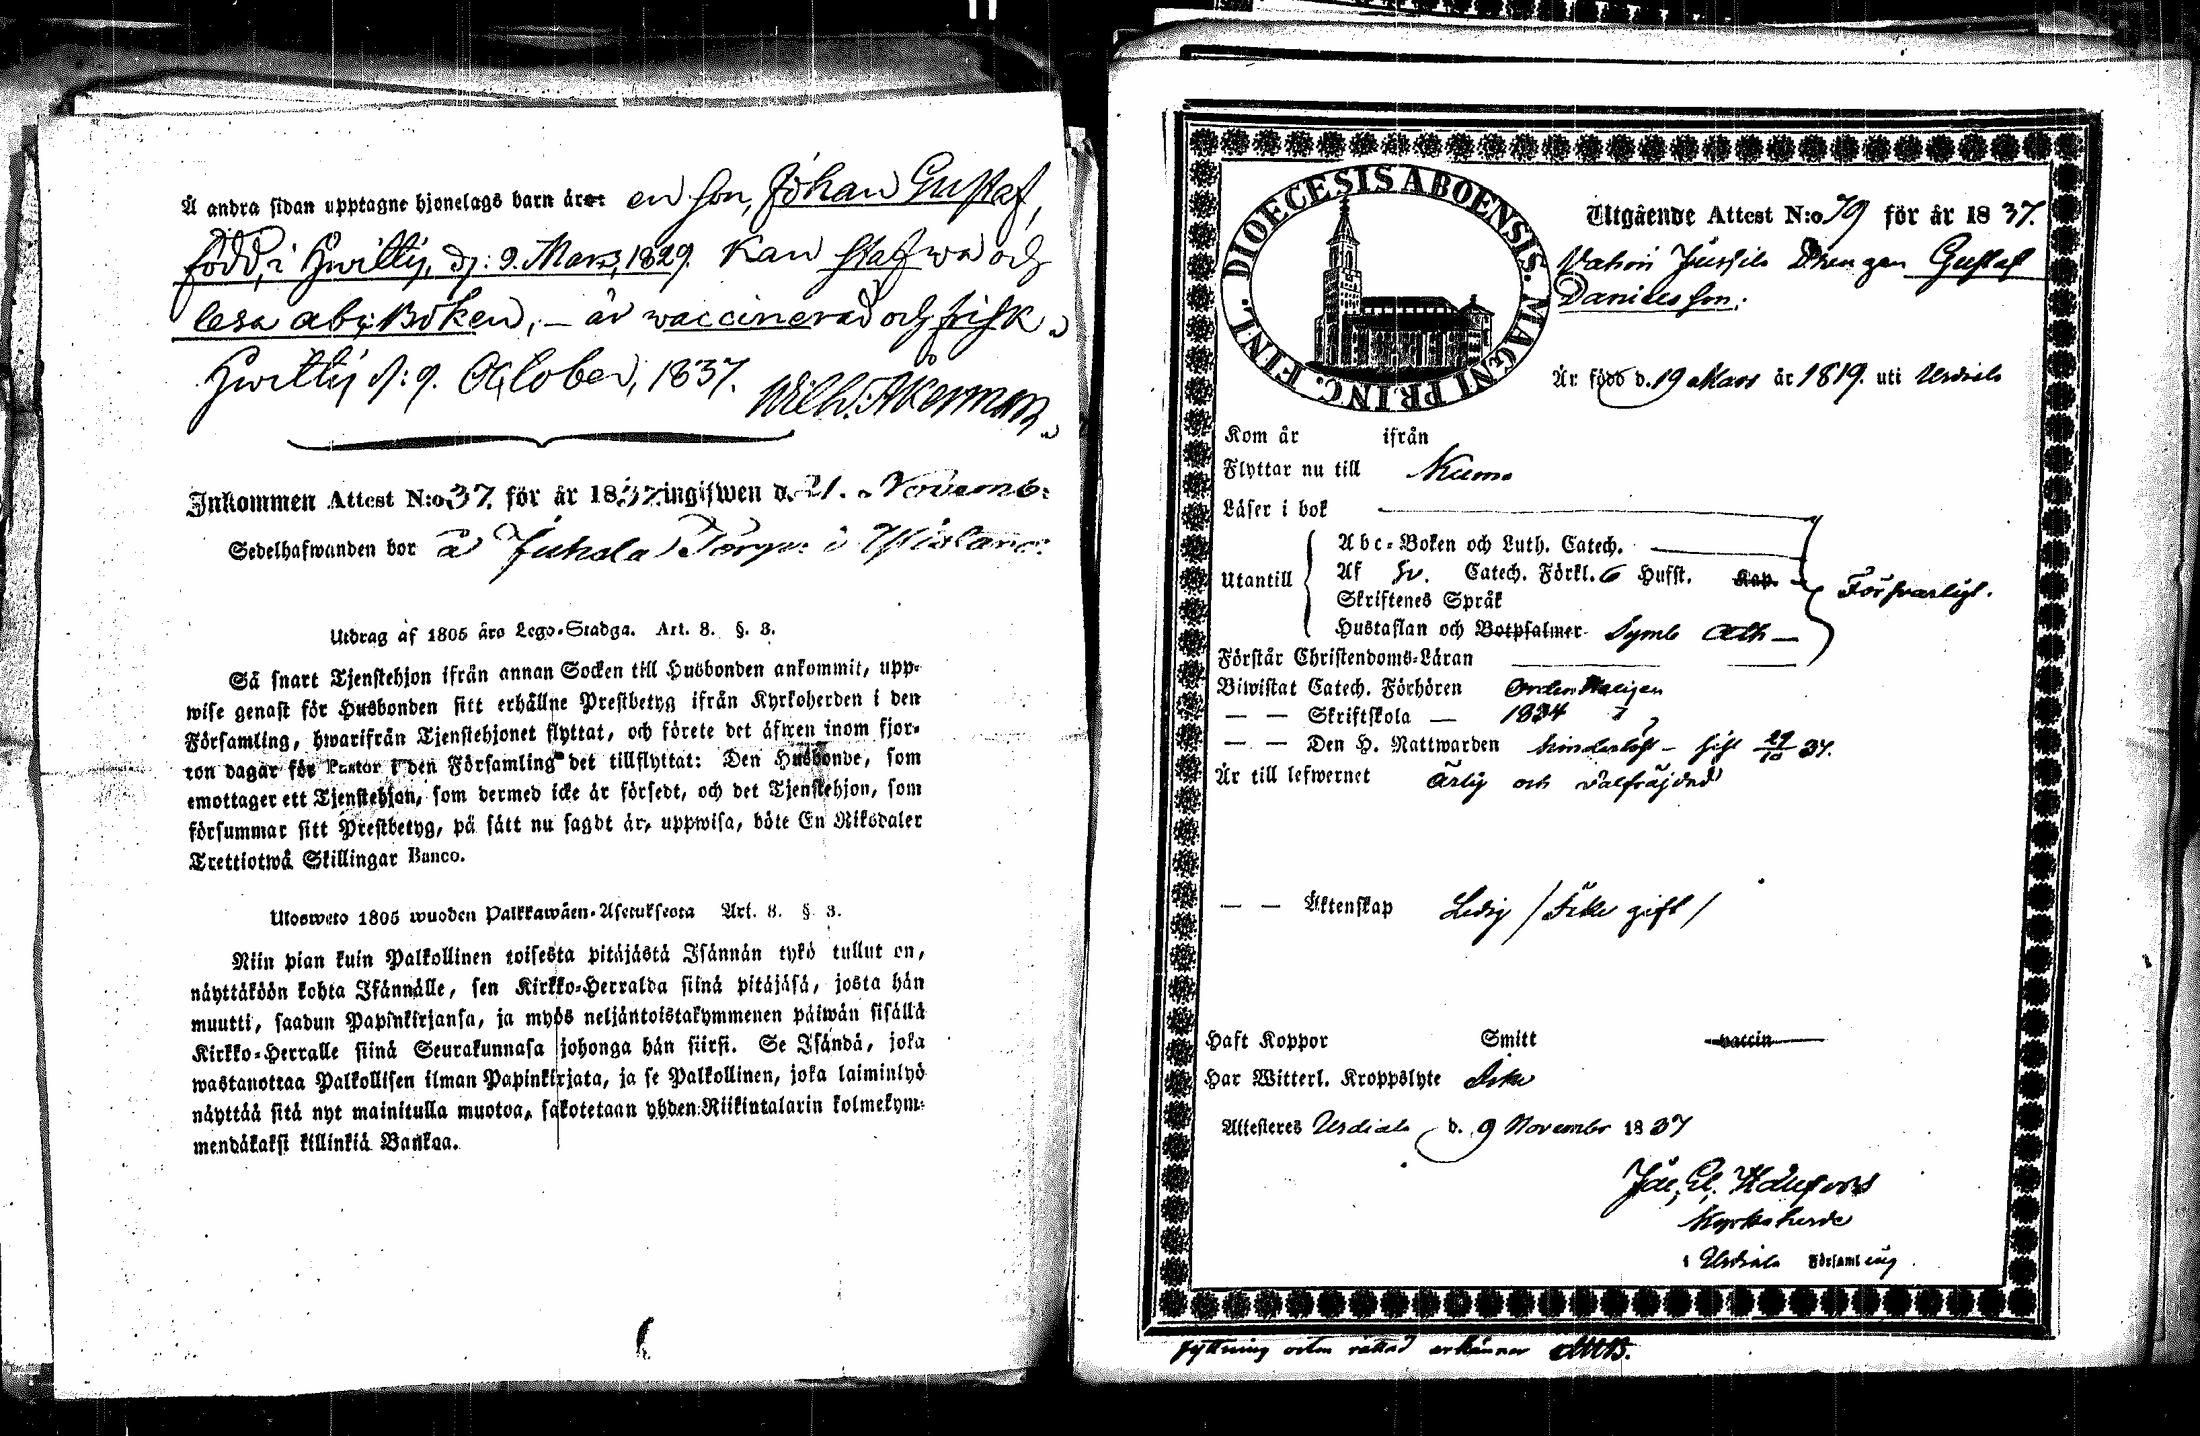 Å andra sidan upptagne hjonelags barn äro: en son, Johan Gustaf,
född, i Hwittis, d: 9. Mars, 1829. kan stafwa och
läsa abc Boken, – är vaccinerad och frisk.
Hwittis d: 9. October, 1837. Wilh. Åkerman.
Inkommen Attest N:o 37. för år 1837. ingifwen d. 21. Novemb:
Sedelhafwanden bor å Juhola Torp: i
Utdrag af 1805 års Lego-Stadga. Art. 8. §. 3.
Så snart Tjenstehjon ifrån annan Socken till Husbonden ankommit, upp-
wise genast för Husbonden sitt erhållne Prestbetyg ifrån Kyrkoherden i den
Församling, hwarifrån Tjenstehjonet flyttat, och förete det äfwen inom fjor-
ton dagar för Pastor i den Församling det tillflyttat: Den Husbonde, som
emottager ett Tjenstehjon, som dermed icke är försedt, och det Tjenstehjon, som
försummar sitt Prestbetyg, på sätt nu sagdt är, uppwisa, böte En Riksdaler
Trettiotwå Skillingar Banco.
Ulosweto 1805 wuoden Palkkawäen-Asetuksesta Art. 8. § 3.
Niin pian kuin Palkollinen toisesta pitäjästä Isännän tykö tullut on,
näyttäköön kohta Isännälle, sen Kirkko-Herralda siinä pitäjäsä, josta hän
muutti, saadun Papinkirjansa, ja myös neljäntoistakymmenen päiwän sisällä
Kirkko-Herralle siinä Seurakunnasa johonga hän siirsi. Se Isändä, joka
wastanottaa Palkollisen ilman Papinkirjata, ja se Palkollinen, joka laiminlyö
näyttää sitä nyt mainitulla muotoa, sakotetaan yhden Riikintalarin kolmekym-
mendäkaksi killinkiä Bankaa.
DIOECESIS ABOENSIS. MAGNI PRINC. FINL.
Utgående Attest N:o 79 för år 1837.
Jussila Drengen Gustaf
Danielsson.
Är född d. 19 Mars år 1819. uti Urdiala
Kom år ifrån
Flyttar nu till Kumo
Läser i bok
Abc-Boken och Luth. Catech.
Utantill Af Sv. Catech. Förkl. 6 Hufst. Kap. Försvarligt.
Skriftenes Språk
Hustaflan och Botpsalmer Symb Ath
Förstår Christendoms-Läran
Biwistat Catech. Förhören Ordenteligen
— — Skriftskola — 1834
— — Den H. Nattwarden hinderlöst – sist 29/10 37.
Är till lefwernet Ärlig och välfräjdad
— — Äktenskap Ledig / Icke gift /
Haft Koppor Smitt vaccin
Har Witterl. Kroppslyte Icke
Attesteres Urdiala d. 9 November 1837
Kyrkoherde
i Urdiala Församling
flyttning orten rättad erkänner